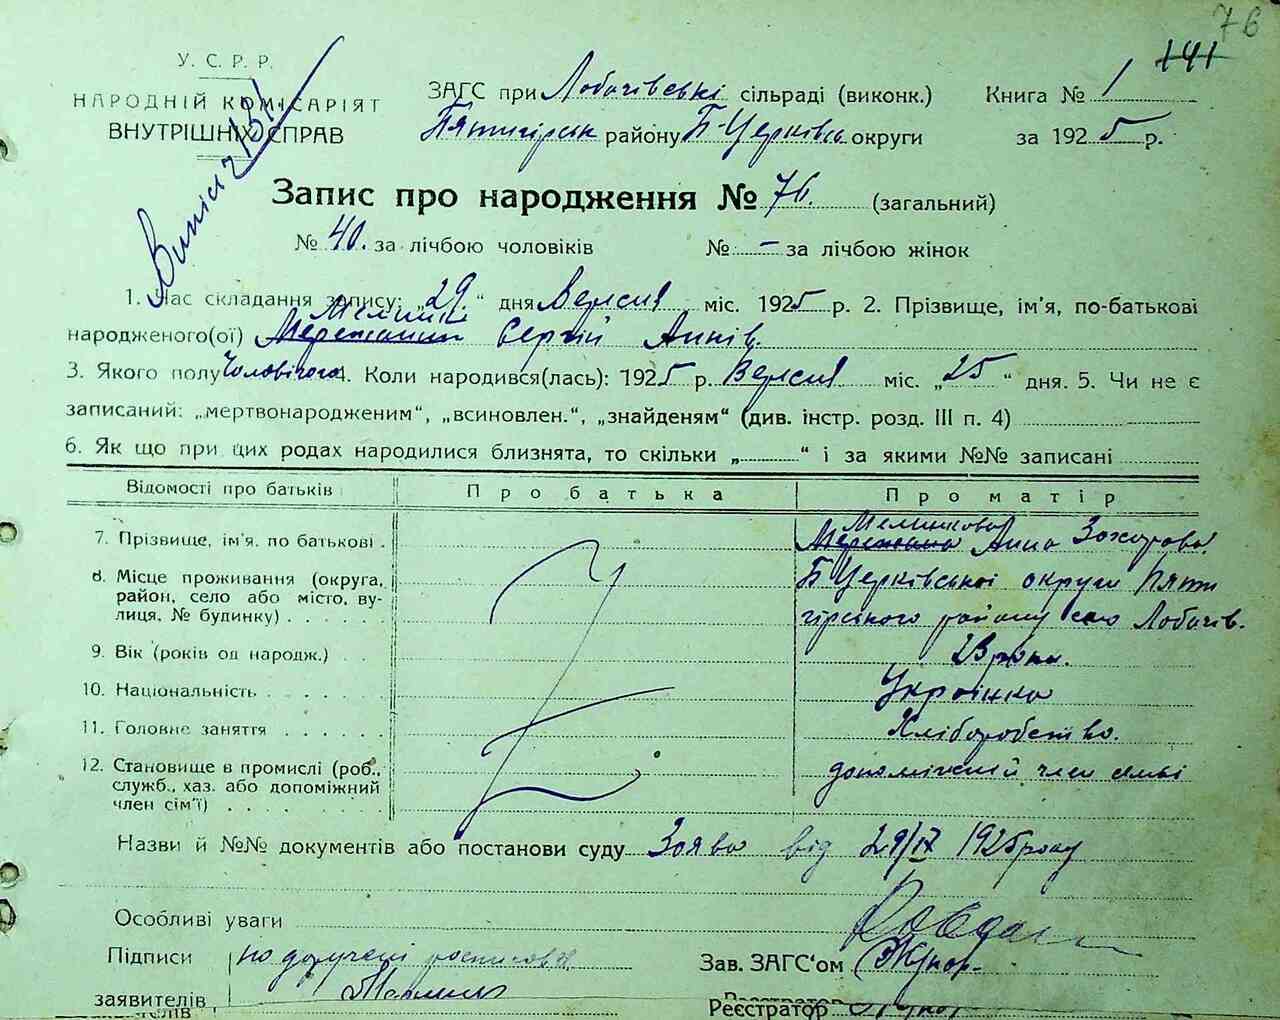 76
141
У. С. Р. Р.
НАРОДНІЙ КОМІСАРІЯТ
ВНУТРІШНІХ СПРАВ
ЗАГС при Лобачівські сільраді (виконк.) Книга № 1
Пятигірськ району Б-Церківсь округи за 1925 р.
Запис про народження № 76. (загальний)
№ 40. за лічбою чоловіків № – за лічбою жінок
1. Час складання запису: „29“ дня Вересня міс. 1925 р. 2. Прізвище, ім'я, по-батькові
народженого(ої) Сергій Аннів.
3. Якого полу Чоловічого 4. Коли народився(лась): 1925 р. Вересня міс. „25“ дня. 5. Чи не є
записаний: „мертвонародженим“, „всиновлен.“, „знайденям“ (див. інстр. розд. III п. 4)
6. Як що при цих родах народилися близнята, то скільки „ “ і за якими №№ записані
Відомості про батьків Про батька Про матір
7. Прізвище, ім'я. по батькові . Мелникова Анна Захарова.
8. Місце проживання (округа, Б Церківської округи Пяти
район, село або місто, ву-
лиця. № будинку) . . . . . гірського району село Лобачів.
9. Вік (років од народж.) . . 23 роки.
10. Національність . . . . . . Українка
11. Головне заняття . . . . . . Хліборобство.
12. Становище в промислі (роб., допоміжний член сімьі
служб., хаз. або допоміжний
член сім'ї) . . . . . . . .
Назви й №№ документів або постанови суду Заява від 29/IX 1925 року
Особливі уваги
Підписи по доручені росписався
Зав. ЗАГС'ом
заявителів
Реєстратор